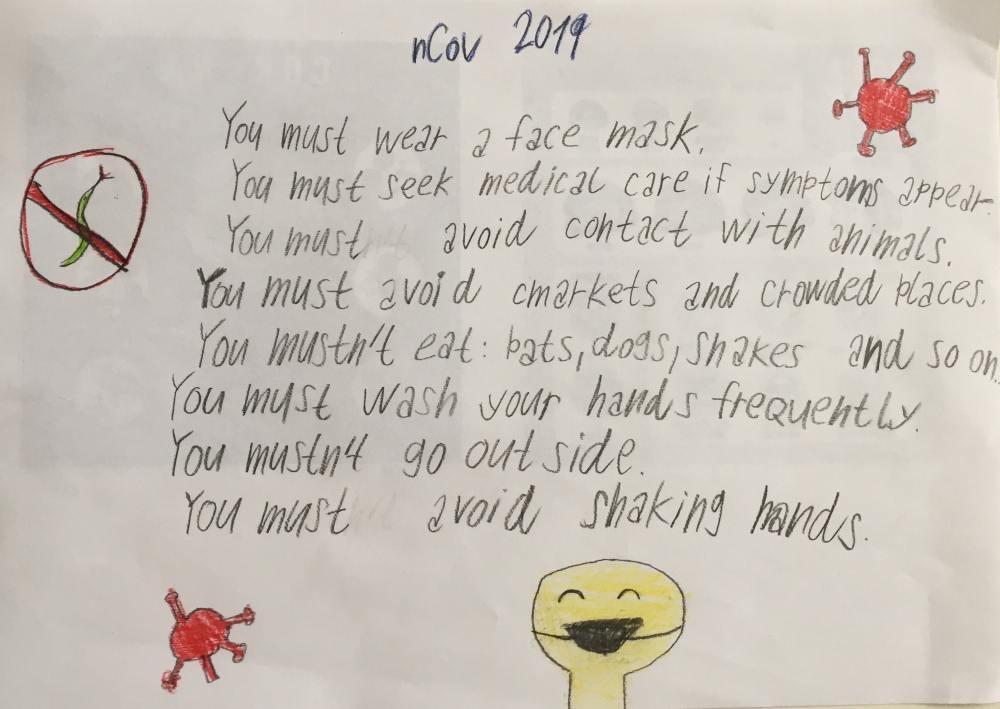 nCov 2019
You must wear a face mask.
You must seek medical care if symptoms appear.
You must avoid contact with animals.
You must avoid cmarkets and crowded places.
You mustn't eat: bats, dogs, snakes and so on.
You must wash your hands frequently.
You mustn't go out side.
You must avoid shaking hands.